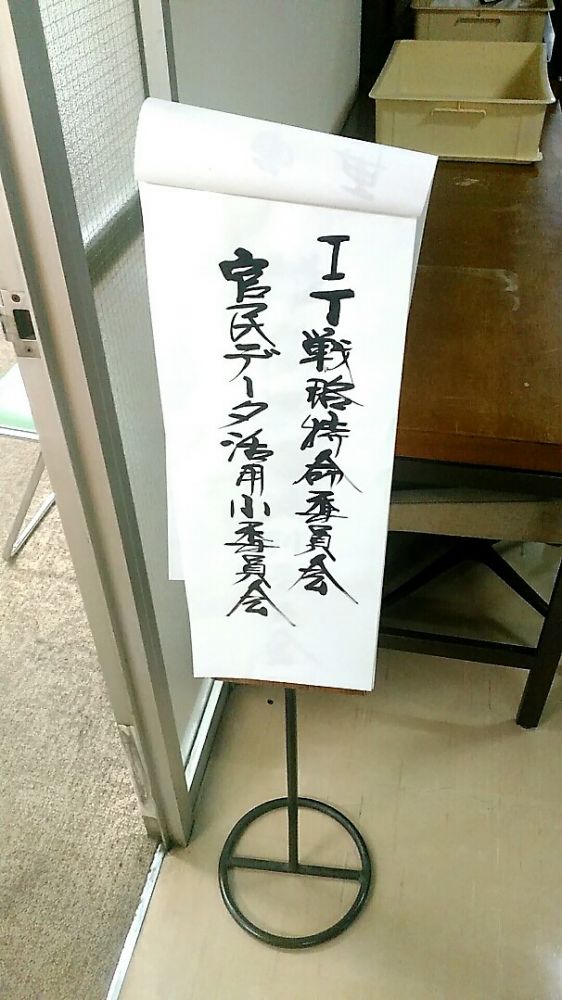 IT戦略特命委員会
官民データ活用小委員会